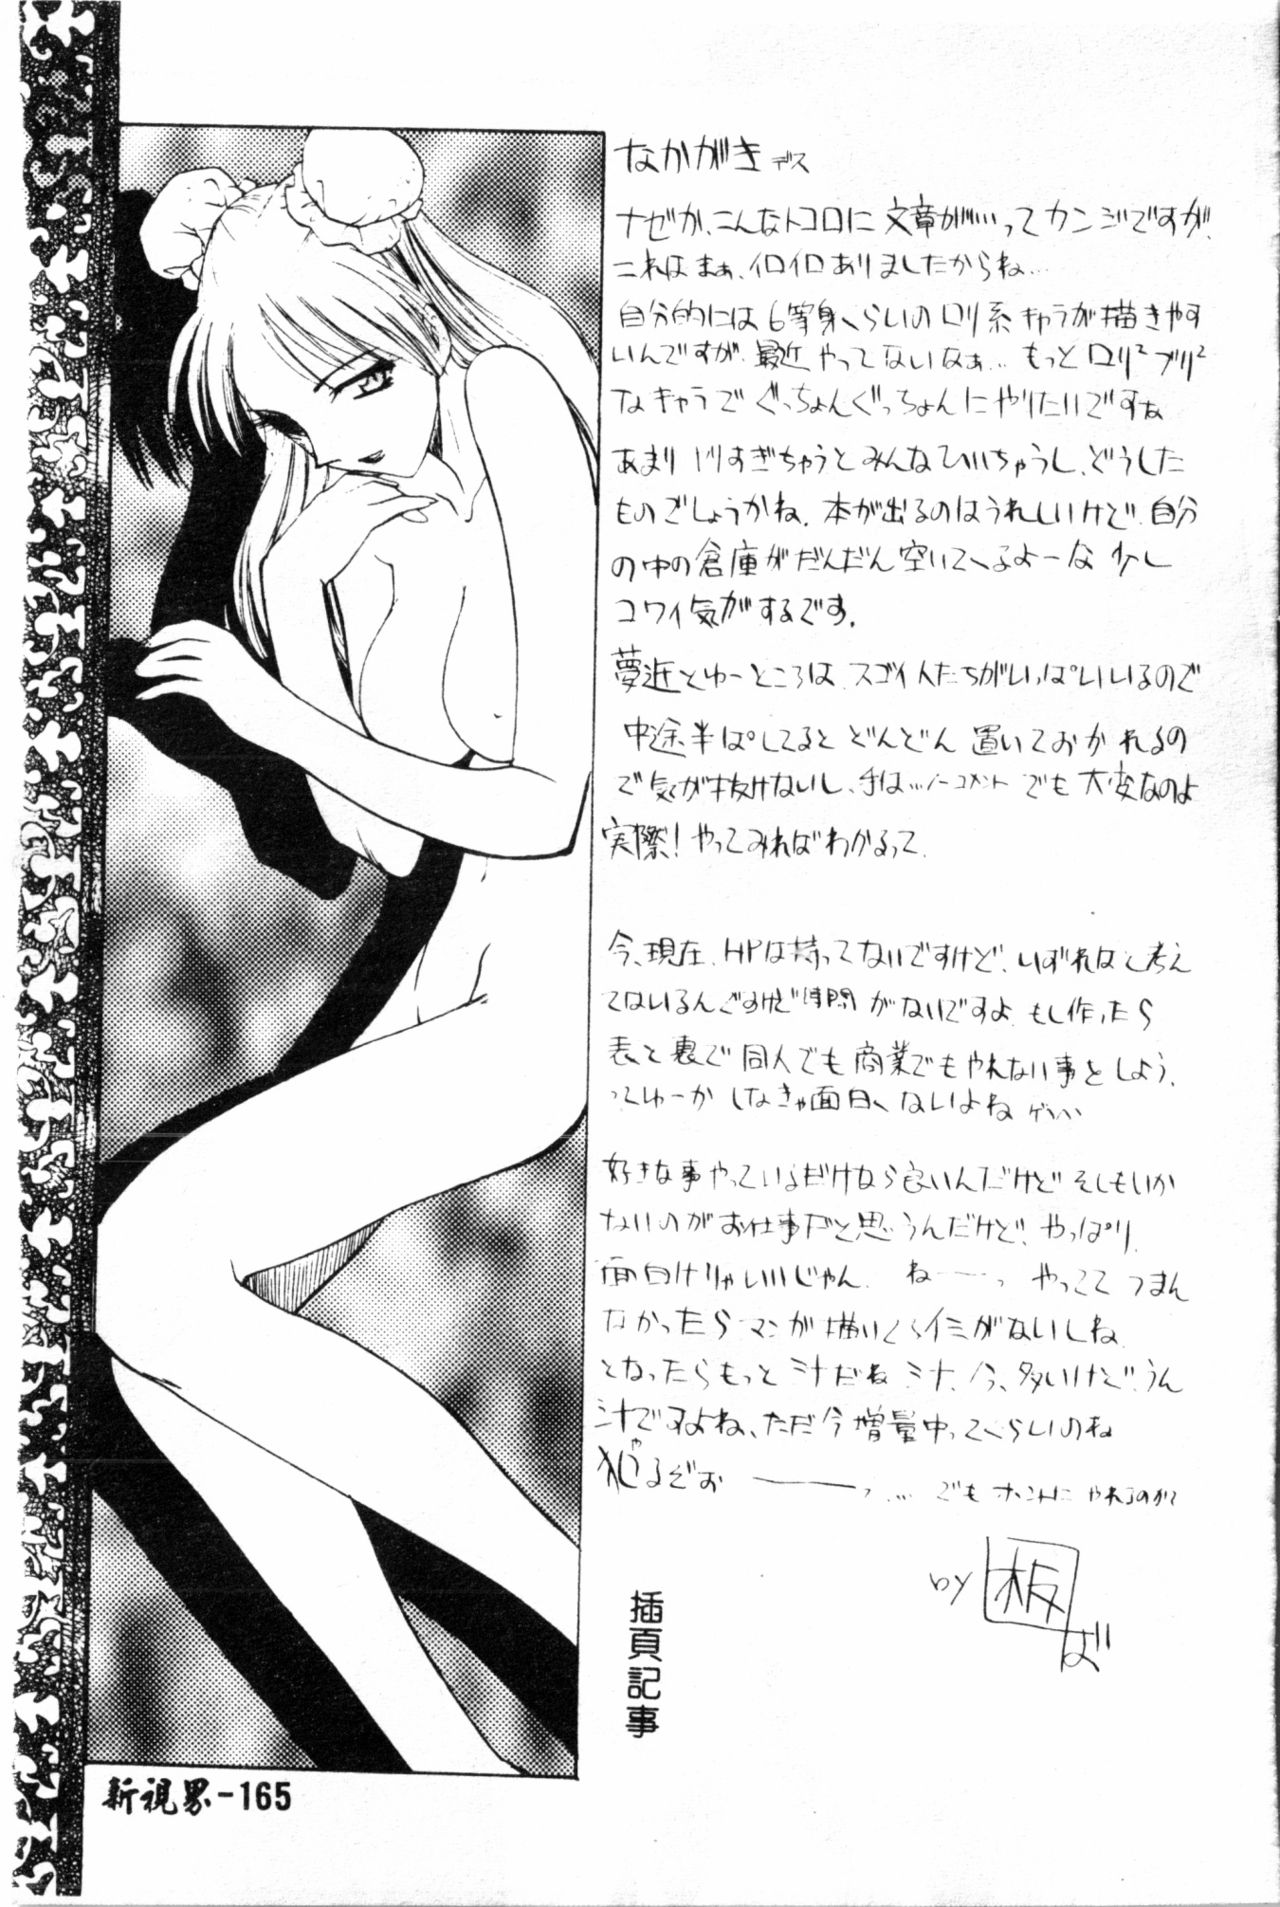 なかがき デス
ナゼか、こんなトコロに文章が…ってカンジですが、
これはまぁ、イロイロありましたからね…
自分的には6等身くらいのロリ系キャラが描きやす
いんですが、最近やってないなぁ… もっとロリ²プリ²
なキャラでぐっちょんぐっちょんにやりたいですね
あまりすぎちゃうとみんなひいちゃうし、どうした
ものでしょうかね。本が出るのはうれしいけど、自分
の中の倉庫がだんだん空いてくるよーな少し
コワイ気がするです。
夢近とゆーところは、スゴイ人たちがいっぱいいるので
中途半ぱしてるとどんどん置いておかれるの
で気が抜けないし、手は…ノーコメント でも大変なのよ
実際!やってみればわかるって。
今、現在、HPは持ってないですけど、いずれはと考え
てはいるんですけど時間がないですよ もし作ったら
表と裏で同人でも商業でもやれない事をしよう。
ってゆーかしなきゃ面白くないよね
好きな事やっているだけなら良いんだけどそーもいか
ないのがお仕事だと思うんだけど、やっぱり、
面白けりゃいいじゃん。 ねーーっ やってて つまん
なかったらマンガ描いてるイミがないしね
となったらもっと汁だね 汁、今、多いけど、うん
汁ですよね、ただ今増量中ってくらいのね
犯るぞぉ ーーーっ… でもホントにやれるのか?
by 板ば
插頁記事
新視界-165